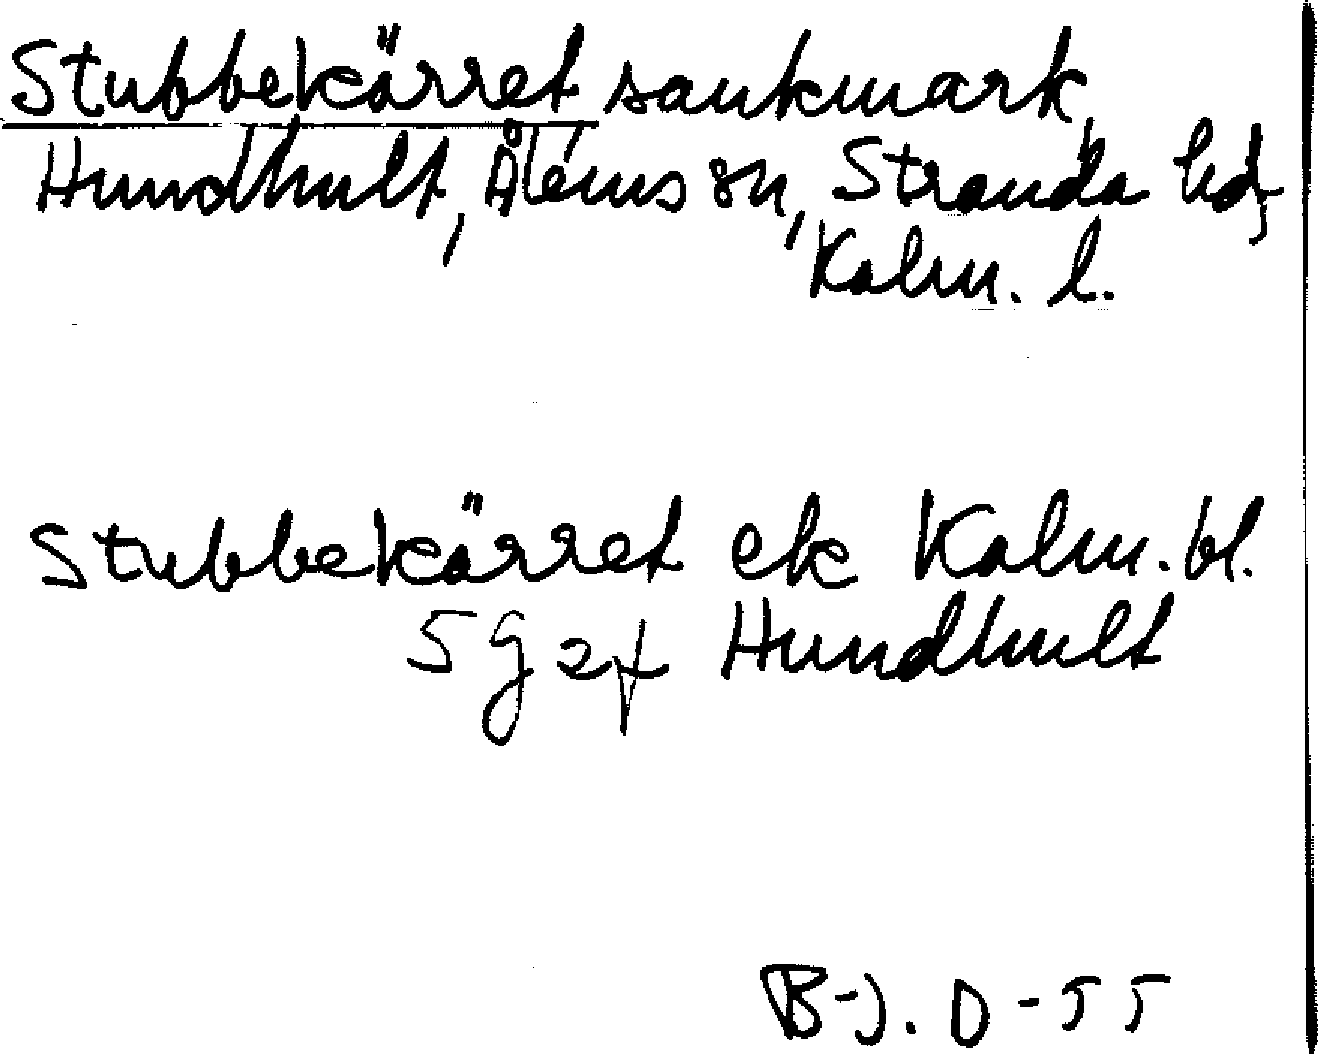 Stubbekärret sankmark,
Hundhult, Ålems sn, Stranda hd,
Kalm. l.
Stubbekärret ek Kalm. bl.
5 g Hundhult
B-J. D-55